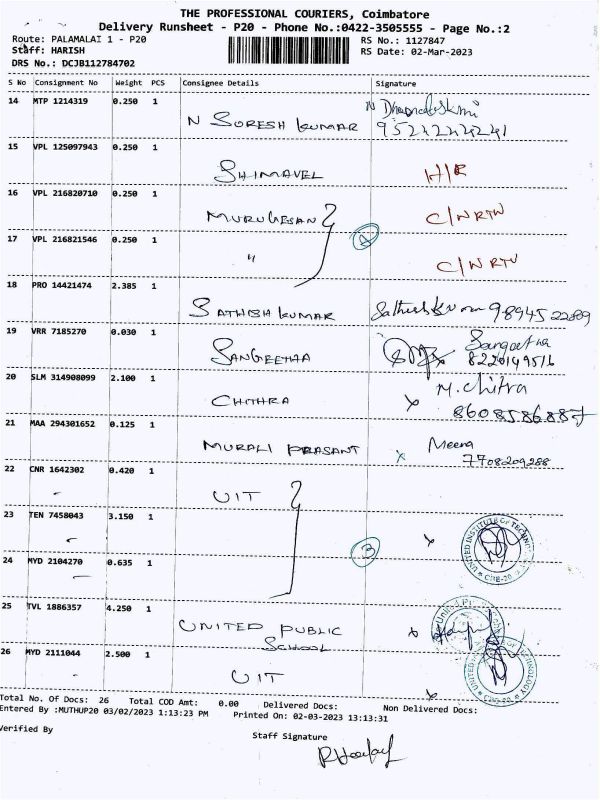 THE PROFESSIONAL COURIERS, Coimbatore
Delivery Runsheet - P20 - Phone No.:0422-3505555 - Page No.:2
Route: PALAMALAI 1 - P20
RS No.: 1127847
Staff: HARISH
RS Date: 02-Mar-2023
DRS No.: DCJB112784702
S No Consignment No Weight PCS Consignee Details Signature
14 MTP 1214319 0.250 1 N SURESH KUMAR
15 VPL 125097943 0.250 1 SHIMAVEL H/R
16 VPL 216820710 0.250 1 MURUGESAN C/N RTN
A
17 VPL 216821546 0.250 1 " C/N RTN
18 PRO 14421474 2.385 1 SATHISH KUMAR 98945 22889
19 VRR 7185270 0.030 1 SANGEETHA Sangeetha
8220149516
20 SLM 314908099 2.100 1 CHITHRA x M. Chitra
8608586887
21 MAA 294301652 0.125 1 MURALI PRASANT x Meena
7708209288
22 CNR 1642302 0.420 1 UIT
23 TEN 7458043 3.150 1 x
UNITED INSTITUTE OF TECHN
CBE-20
B
24 MYD 2104270 0.635 1
25 TVL 1886357 4.250 1 UNITED PUBLIC
SCHOOL x
26 MYD 2111044 2.500 1 UIT x
Total No. Of Docs: 26 Total COD Amt: 0.00 Delivered Docs: Non Delivered Docs:
Entered By :MUTHUP20 03/02/2023 1:13:23 PM Printed On: 02-03-2023 13:13:31
Verified By
Staff Signature